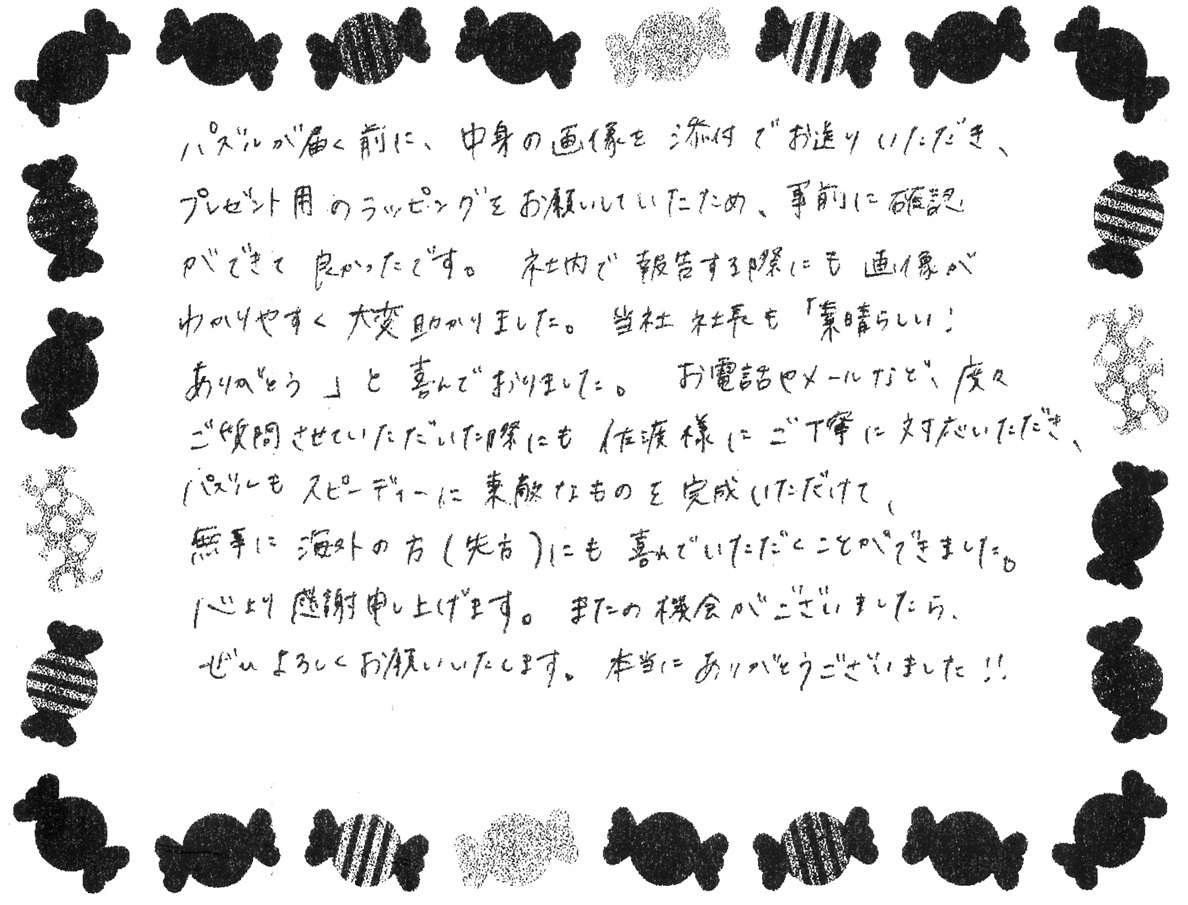 パズルが届く前に、中身の画像を添付でお送りいただき、
プレゼント用のラッピングをお願いしていたため、事前に確認
ができて良かったです。社内で報告する際にも画像が
わかりやすく大変助かりました。当社社長も「素晴らしい!
ありがとう」と喜んでおりました。お電話やメールなど、度々
ご質問させていただいた際にも佐渡様にご丁寧に対応いただき、
パズルもスピーディーに素敵なものを完成いただけて、
無事に海外の方(先方)にも喜んでいただくことができました。
心より感謝申し上げます。またの機会がございましたら、
ぜひよろしくお願いいたします。本当にありがとうございました!!